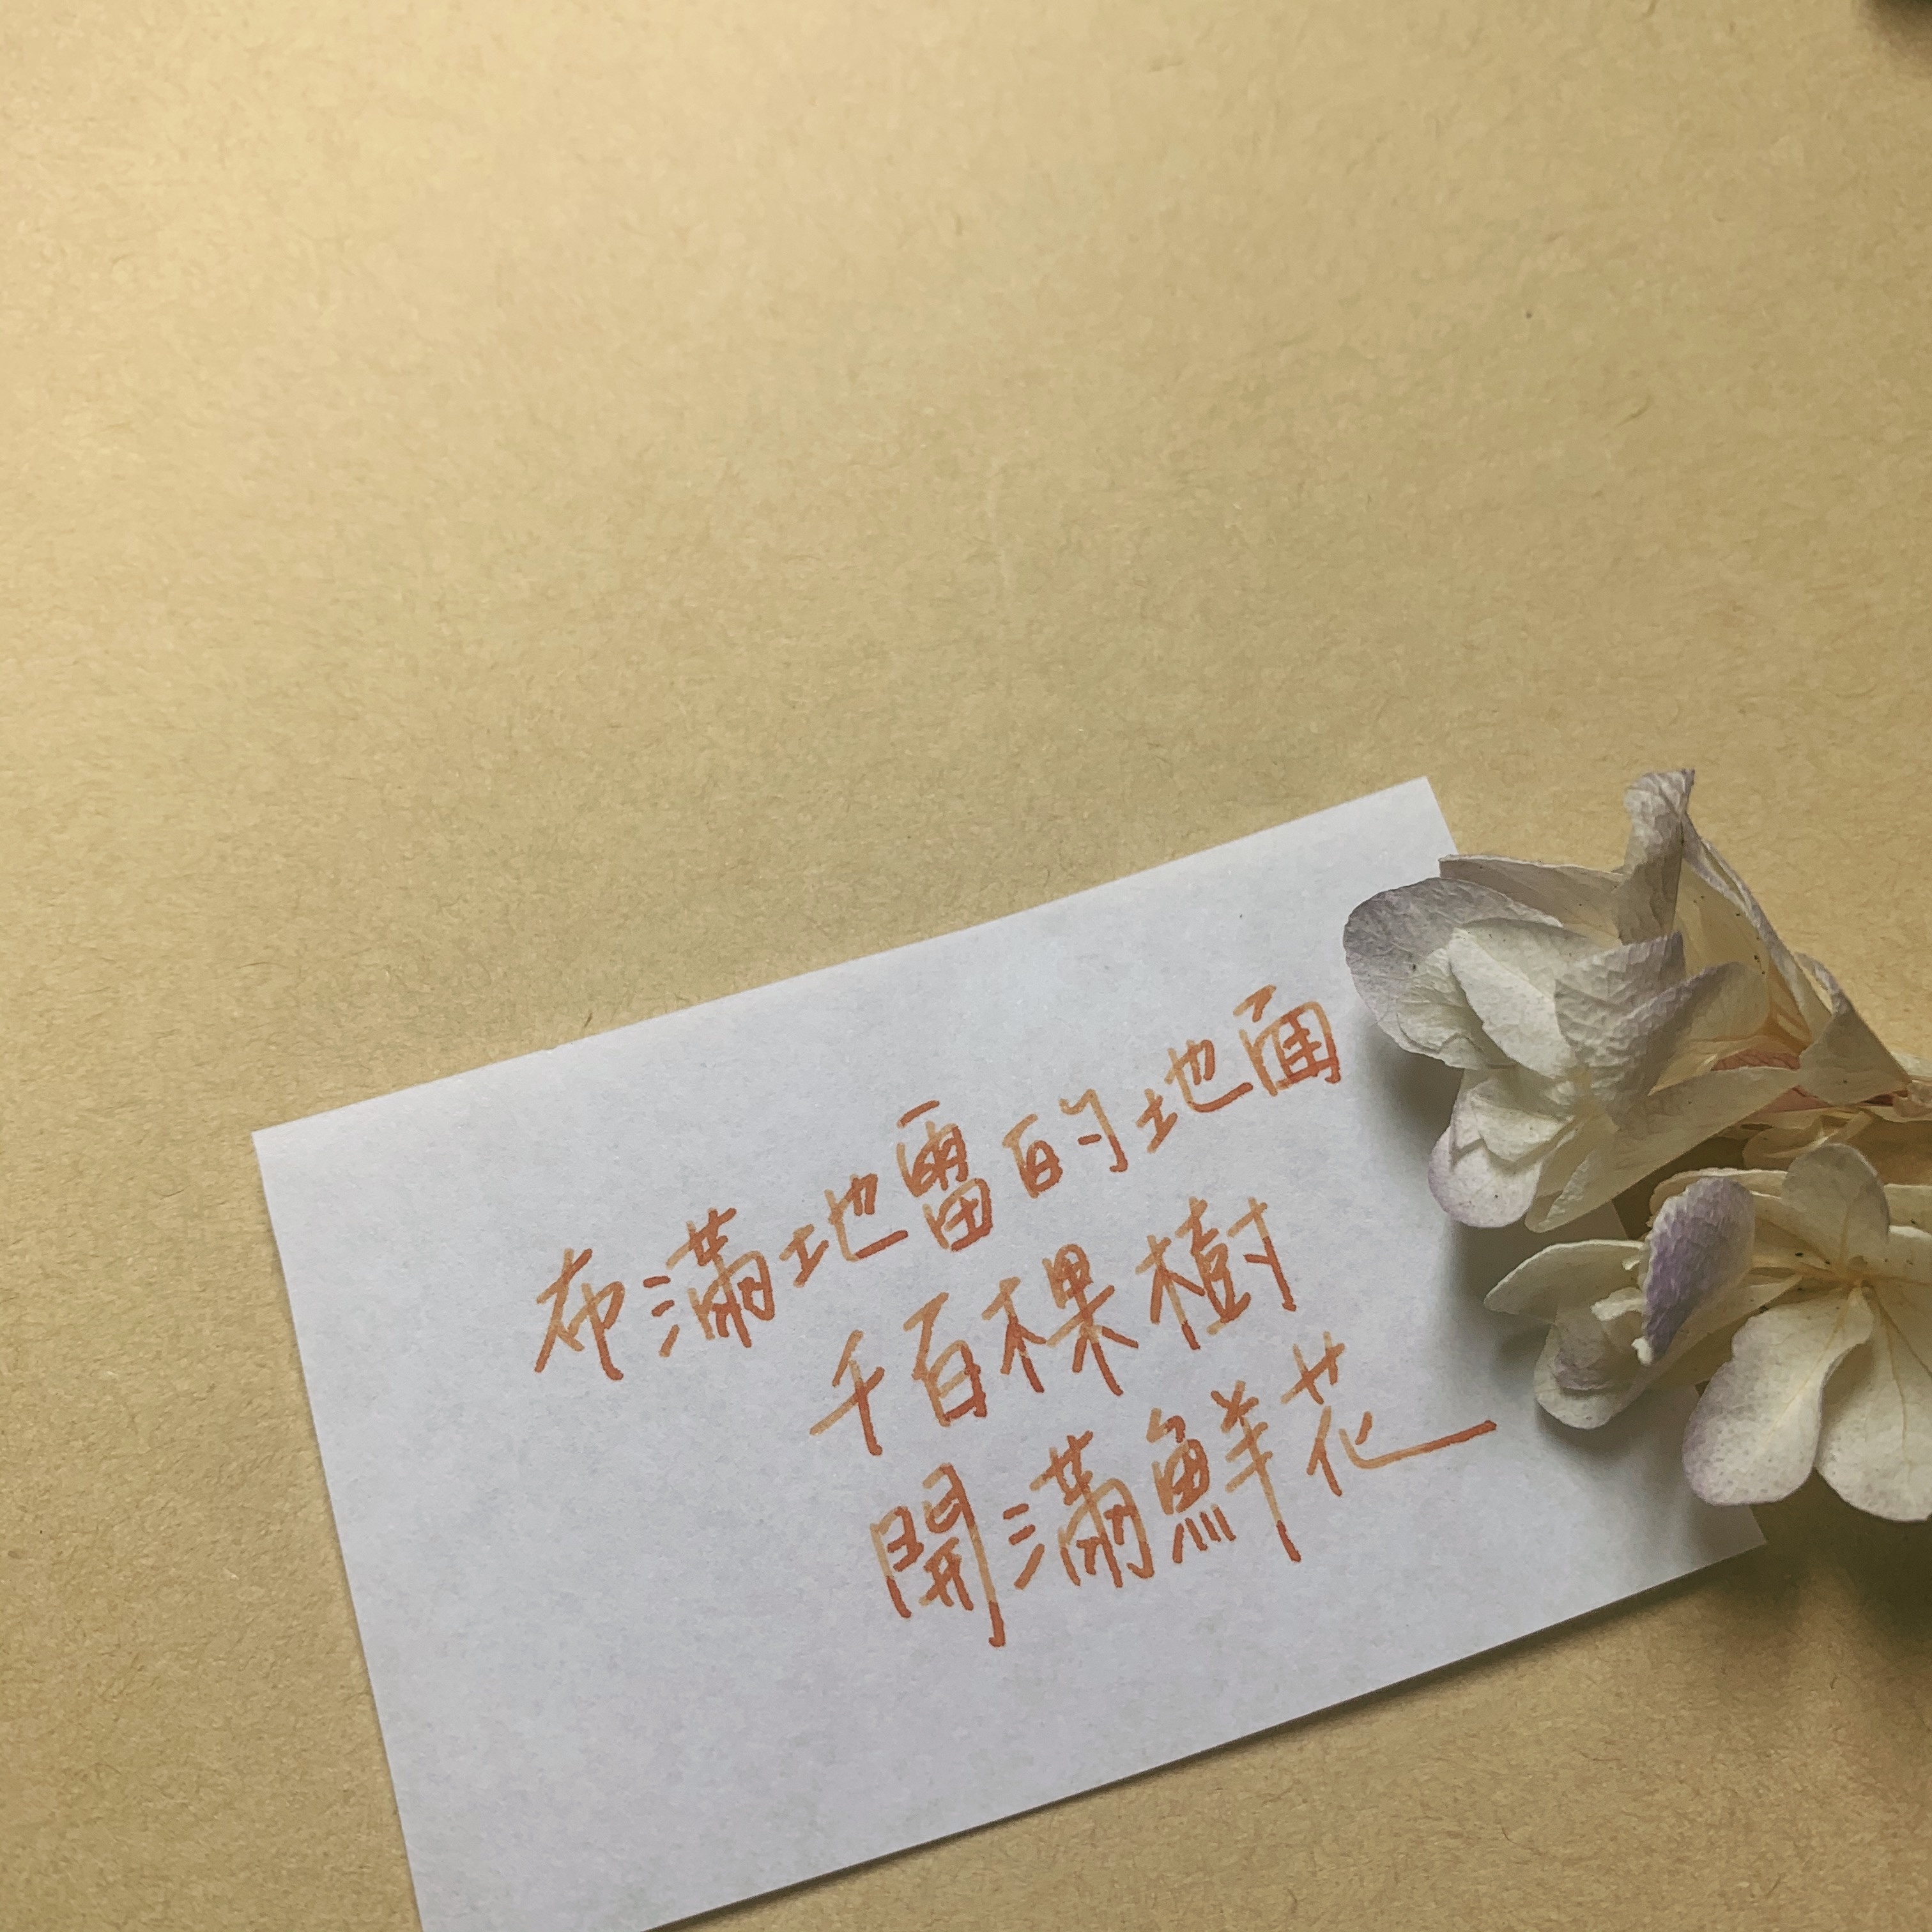 布滿地雷的地面
千百棵樹
開滿鮮花